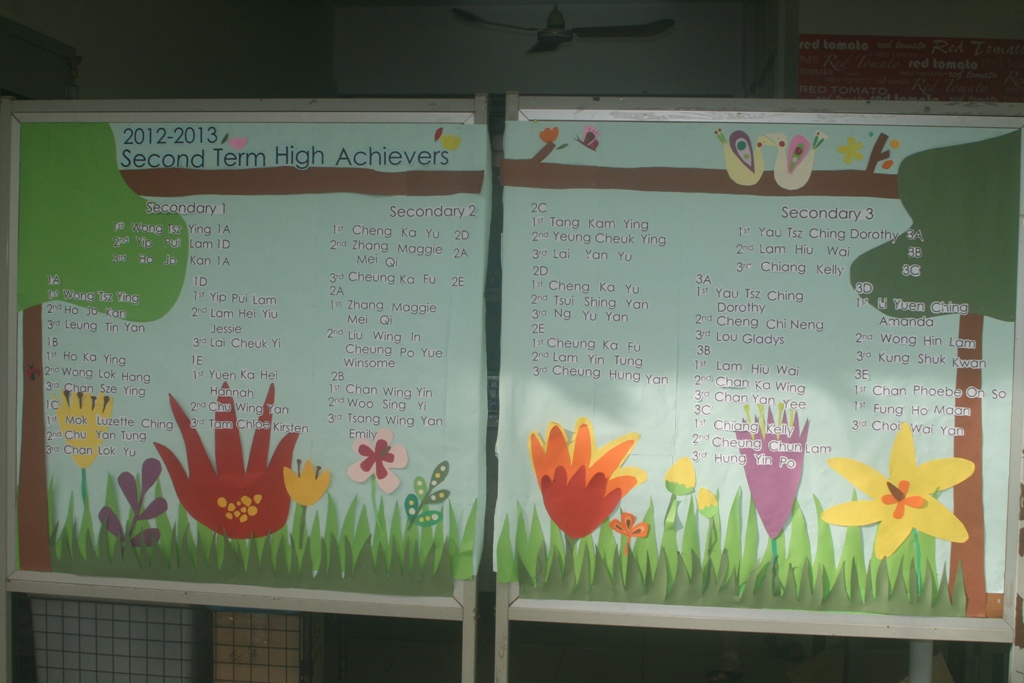 2012-2013
Second Term High Achievers
Secondary 1
1st Wong Tsz Ying 1A
2nd Yip Pui Lam 1D
3rd Ho Jo Kan 1A
1A
1st Wong Tsz Ying
2nd Ho Jo Kan
3rd Leung Tin Yan
1B
1st Ho Ka Ying
2nd Wong Lok Hang
3rd Chan Sze Ying
1C
1st Mok Luzette Ching
2nd Chu Yan Tung
3rd Chan Lok Yu
1D
1st Yip Pui Lam
2nd Lam Hei Yiu
Jessie
3rd Lai Cheuk Yi
1E
1st Yuen Ka Hei
Hannah
2nd Chu Wing Yan
3rd Tam Chloe Kirsten
Secondary 2
1st Cheng Ka Yu 2D
2nd Zhang Maggie 2A
Mei Qi
3rd Cheung Ka Fu 2E
2A
1st Zhang Maggie
Mei Qi
2nd Liu Wing In
Cheung Po Yue
Winsome
2B
1st Chan Wing Yin
2nd Woo Sing Yi
3rd Tsang Wing Yan
Emily
2C
1st Tang Kam Ying
2nd Yeung Cheuk Ying
3rd Lai Yan Yu
2D
1st Cheng Ka Yu
2nd Tsui Shing Yan
3rd Ng Yu Yan
2E
1st Cheung Ka Fu
2nd Lam Yin Tung
3rd Cheung Hung Yan
Secondary 3
1st Yau Tsz Ching Dorothy 3A
2nd Lam Hiu Wai 3B
3rd Chiang Kelly 3C
3A
1st Yau Tsz Ching
Dorothy
2nd Cheng Chi Neng
3rd Lou Gladys
3B
1st Lam Hiu Wai
2nd Chan Ka Wing
3rd Chan Yan Yee
3C
1st Chiang Kelly
2nd Cheung Chun Lam
3rd Hung Yin Po
3D
1st Li Yuen Ching
Amanda
2nd Wong Hin Lam
3rd Kung Shuk Kwan
3E
1st Chan Phoebe On So
1st Fung Ho Maan
3rd Choi Wai Yan
red tomato red tomato Red Tomato
Red Tomato red tomato
tomato Red Tomato red tomato
RED TOMATO Red Tomato
red tomato